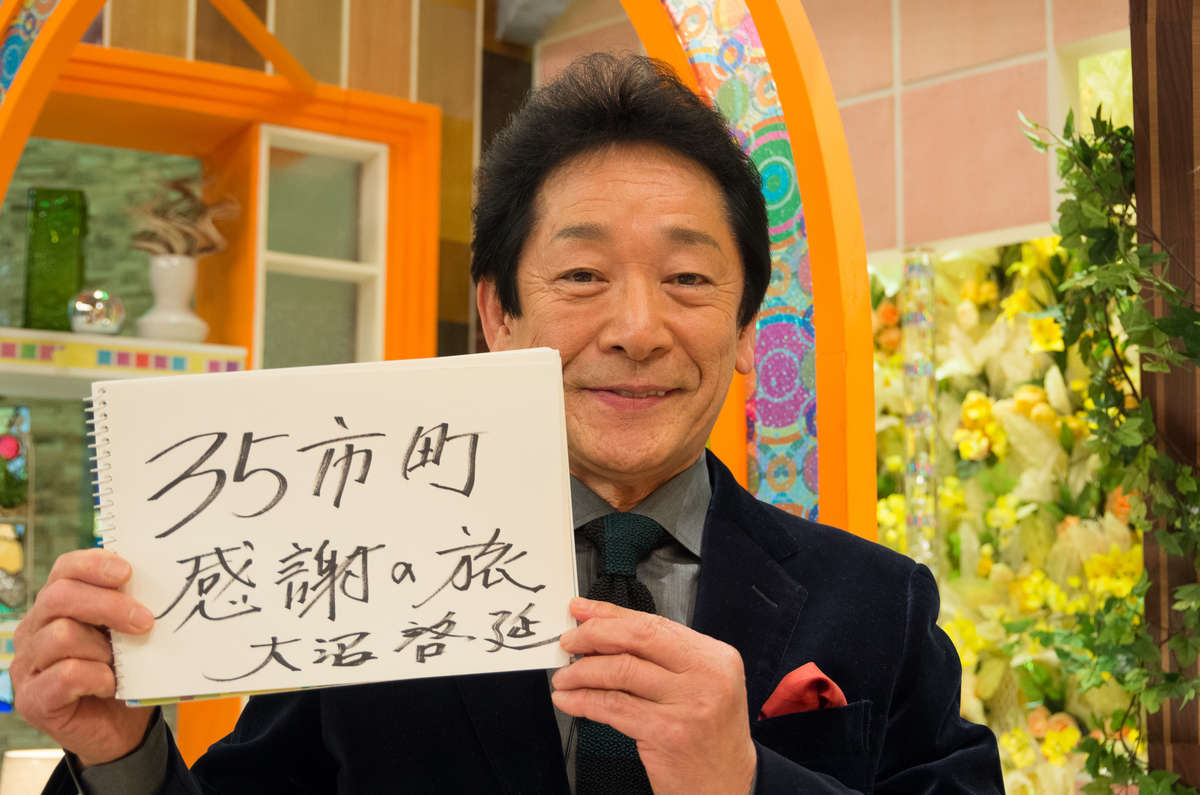 35市町
感謝の旅
大沼啓延